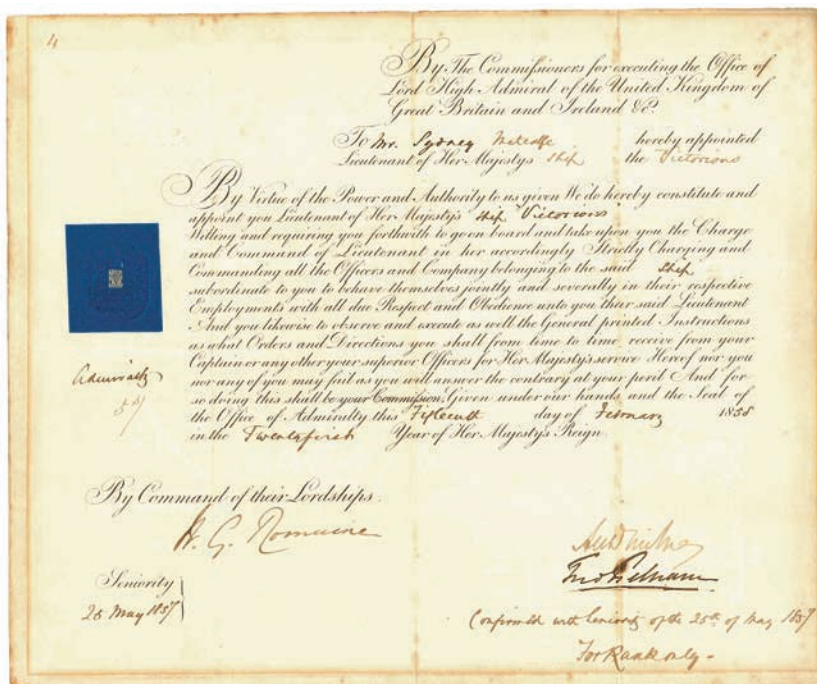 4
By The Commissioners for executing the Office of
Lord High Admiral of the United Kingdom of
Great Britain and Ireland &c.
To Mr. Sydney Metcalfe hereby appointed
Lieutenant of Her Majesty's Ship the Victorious
By Virtue of the Power and Authority to us given We do hereby constitute and
appoint you Lieutenant of Her Majesty's Ship Victorious
Willing and requiring you forthwith to go on board and take upon you the Charge
and Command of Lieutenant in her accordingly Strictly Charging and
Commanding all the Officers and Company belonging to the said Ship
subordinate to you to behave themselves jointly and severally in their respective
Employments with all due Respect and Obedience unto you their said Lieutenant
And you likewise to observe and execute as well the General printed Instructions
as what Orders and Directions you shall from time to time receive from your
Captain or any other your superior Officers for Her Majesty's service Hereof nor you
nor any of you may fail as you will answer the contrary at your peril And for
so doing this shall be your Commission. Given under our hands and the Seal of
the Office of Admiralty this Fifteenth day of February 1858
in the Twenty first Year of Her Majesty's Reign
Admiralty
5/-
By Command of their Lordships.
W. G. Romaine
Fred Pelham
Seniority
25 May 1857
Confirmed with Seniority of the 25th of May 1857
For Rank only -